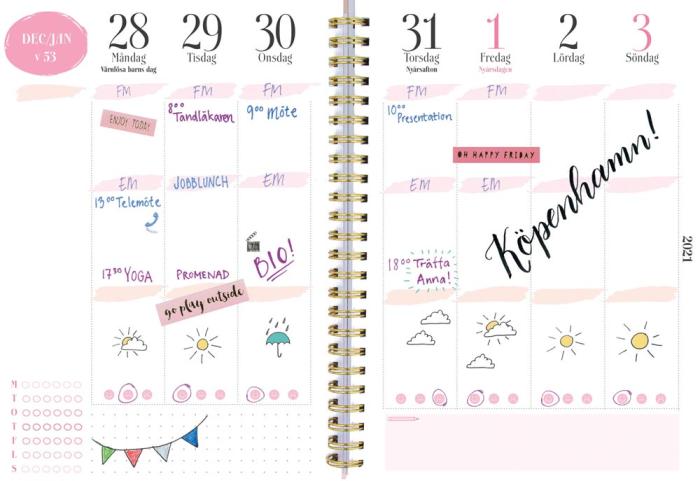 DEC/JAN
v 53
28
Måndag
Värnlösa barns dag
29
Tisdag
30
Onsdag
31
Torsdag
Nyårsafton
1
Fredag
Nyårsdagen
2
Lördag
3
Söndag
FM
FM
FM
FM
FM
ENJOY TODAY
8⁰⁰
Tandläkaren
9⁰⁰ Möte
10⁰⁰
Presentation
OH HAPPY FRIDAY
Köpenhamn!
EM
JOBBLUNCH
EM
EM
EM
13⁰⁰ Telemöte
17³⁰ YOGA
PROMENAD
BIO!
18⁰⁰ Träffa
Anna!
2021
go play outside
M
T
O
T
F
L
S